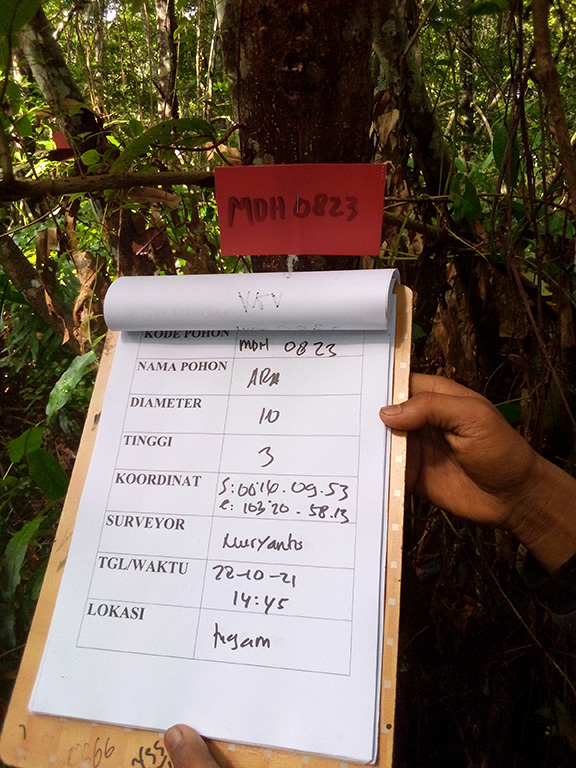 MDH 0823
KODE POHON MDH 0823
NAMA POHON ARA
DIAMETER 10
TINGGI 3
KOORDINAT S:00.16.09.53
E: 103.20.58.13
SURVEYOR Nuryanto
TGL/WAKTU 22-10-21
14:45
LOKASI